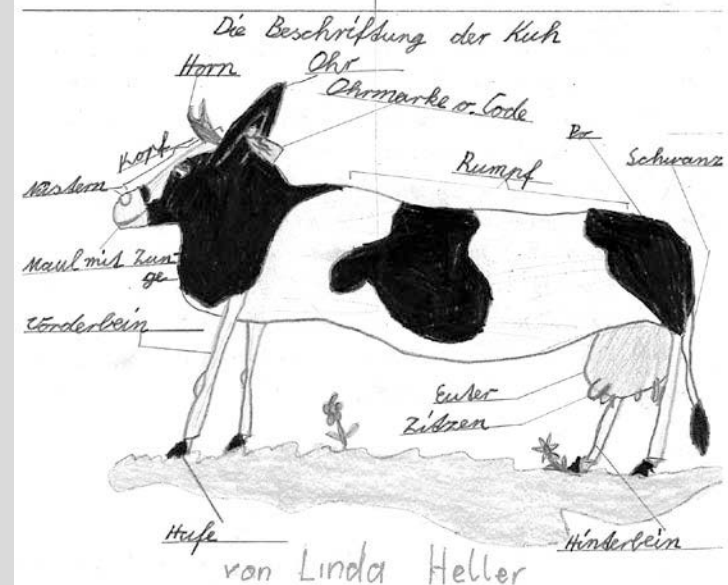 Die Beschriftung der Kuh
Horn
Ohr
Ohrmarke o. Code
Kopf
Rumpf
Po
Schwanz
Nüstern
Maul mit Zun-
ge
Vorderbein
Euter
Zitzen
Hufe
Hinterbein
von Linda Heller